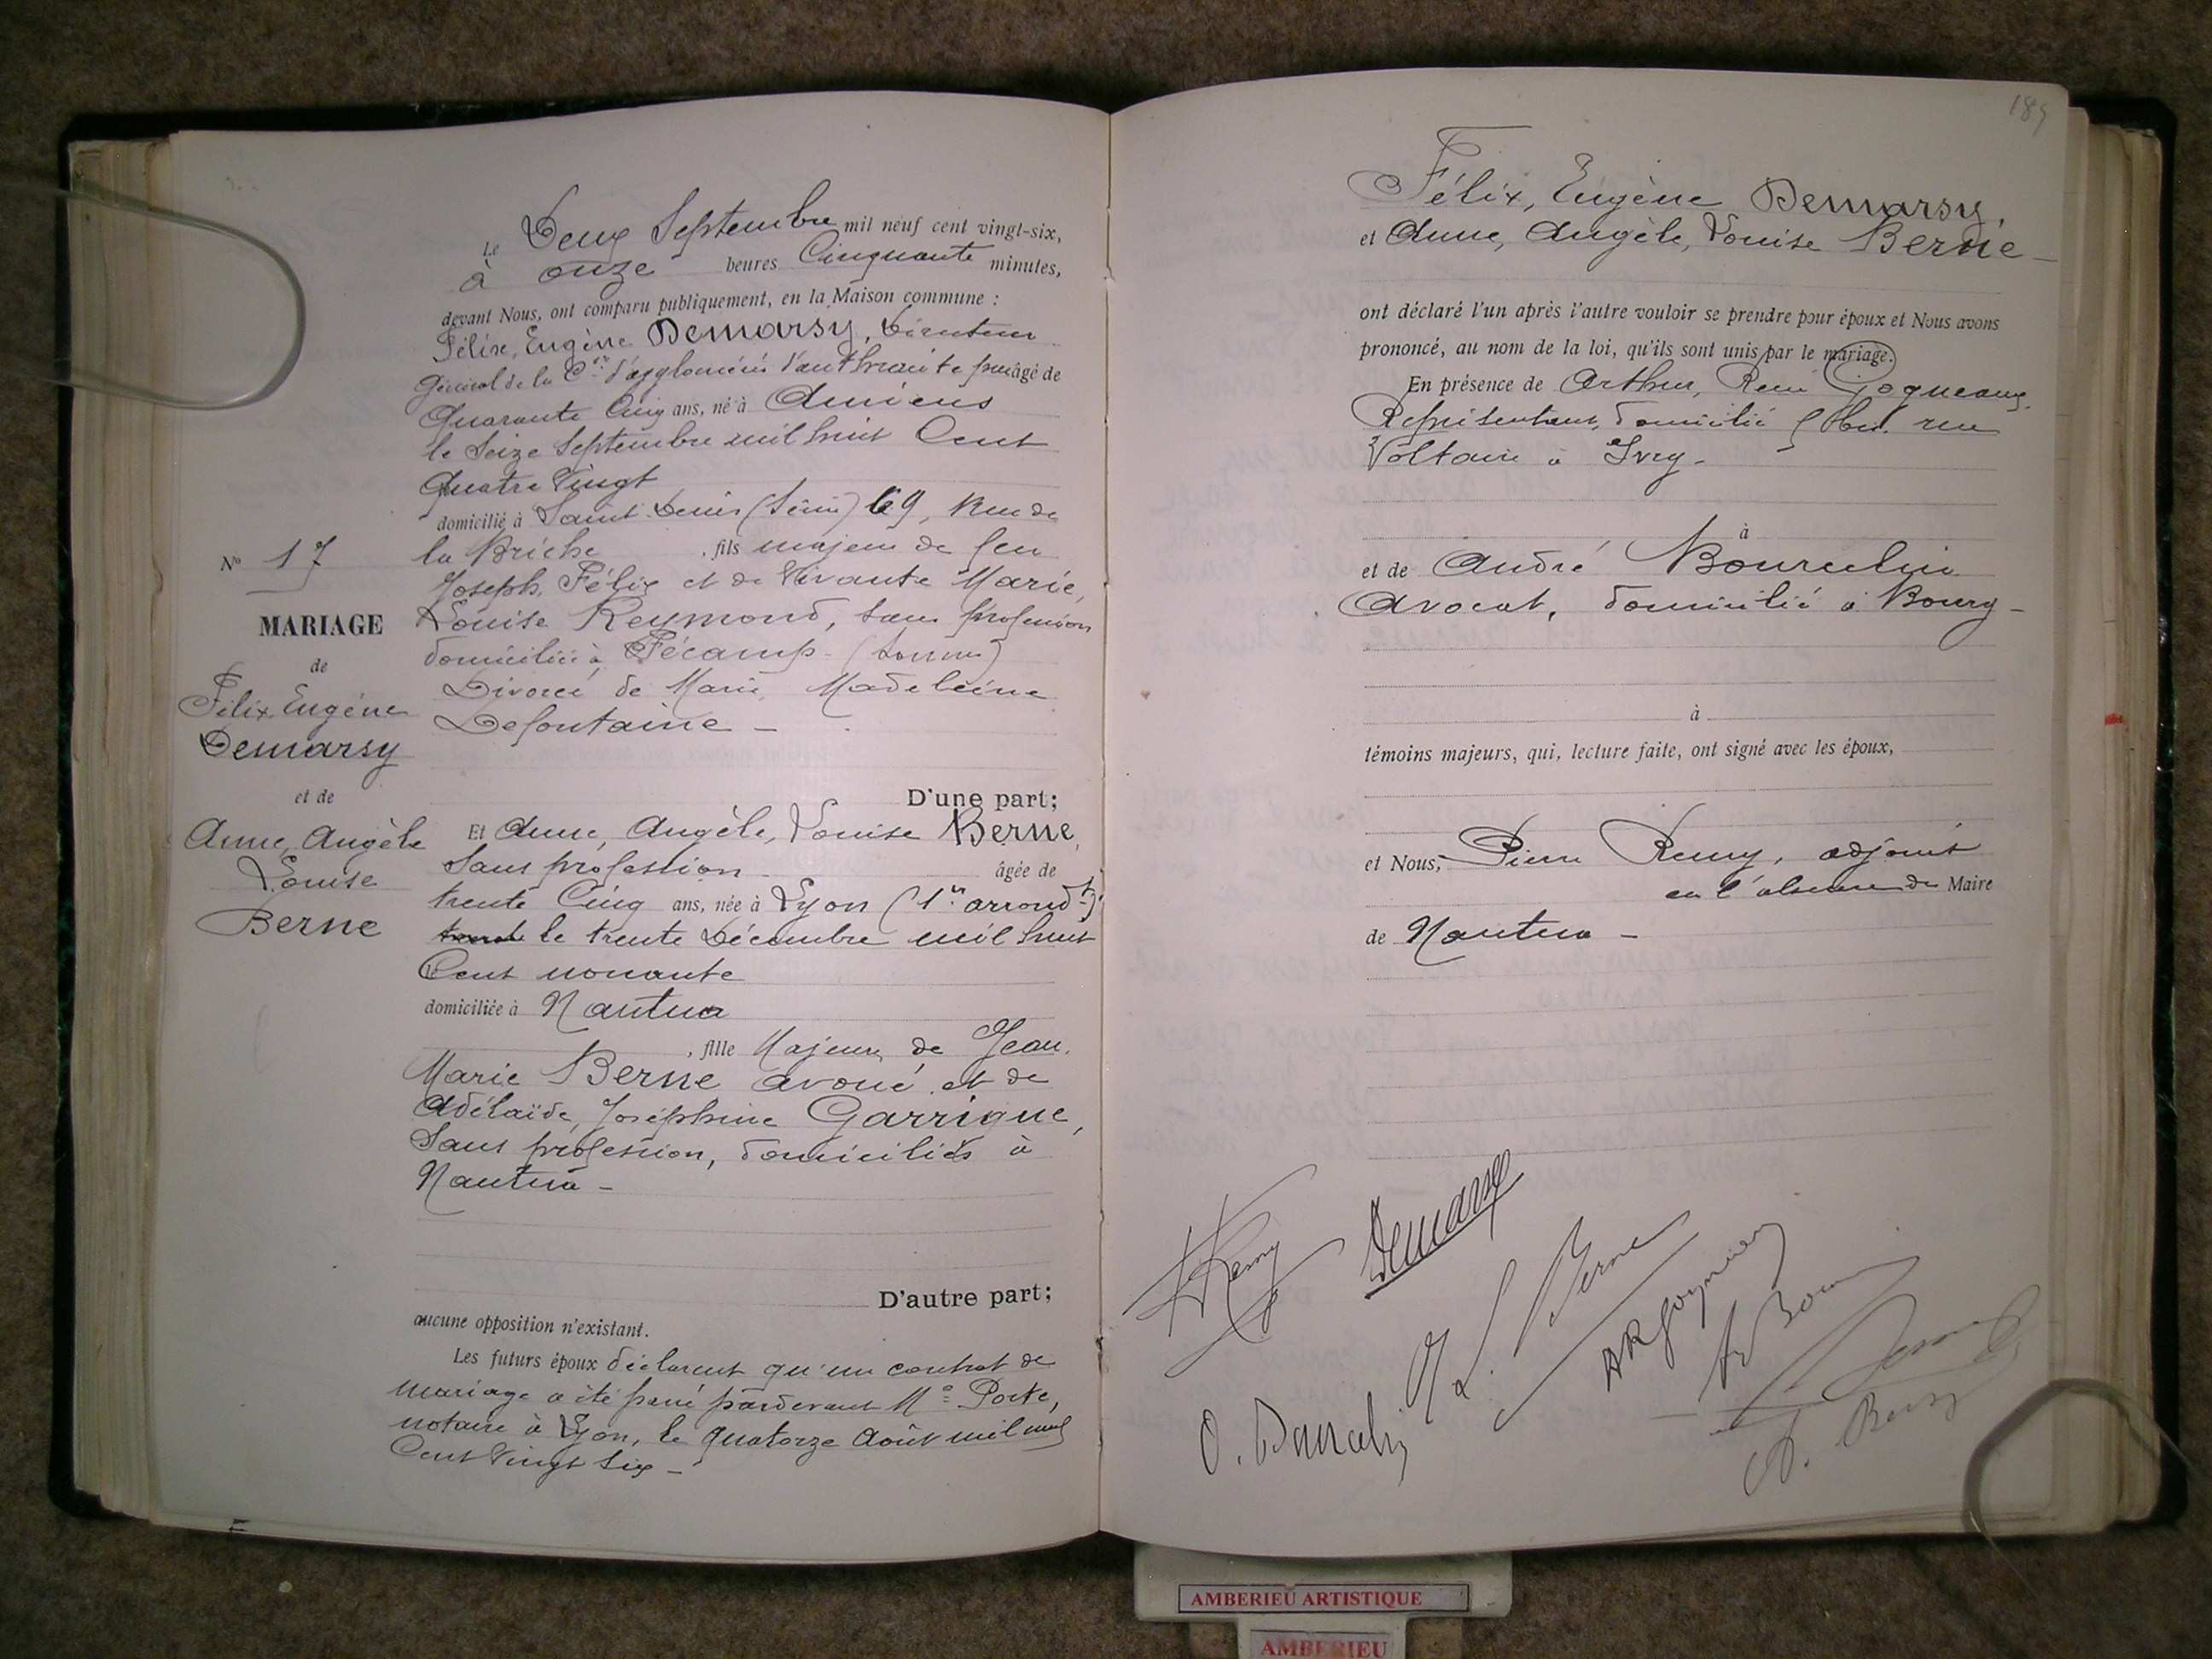 Le Deux Septembre mil neuf cent vingt-six,
à onze heures Cinquante minutes,
devant Nous, ont comparu publiquement, en la Maison commune :
Félix, Eugène Demarsy, Directeur
Général de la Cie d'agglomérés d'anthracite âgé de
Quarante Cinq ans, né à Amiens
le Seize Septembre mil huit Cent
Quatre Vingt
domicilié à Saint-Denis (Seine) 69, Rue de
la Briche, fils majeur de feu
Joseph, Félix et de Vivante Marie,
Louise Reymond, sans profession
domiciliée à Fécamp
Divorcé de Marie Madeleine
Defontaine -
N° 17
MARIAGE
de
Félix Eugène
Demarsy
et de
Anne, Angèle
Louise
Berne
D'une part;
Et Anne, Angèle, Louise Berne,
Sans profession âgée de
trente Cinq ans, née à Lyon (1er arrondt)
le trente Décembre mil huit
Cent nonante
domiciliée à Nantua
, fille Majeure de Jean,
Marie Berne avoué et de
Adélaïde, Joséphine Garrigue,
Sans profession, domiciliés à
Nantua -
D'autre part;
aucune opposition n'existant.
Les futurs époux déclarent qu'un contrat de
mariage a été passé pardevant Me Porte,
notaire à Lyon, le quatorze Août mil neuf
Cent Vingt Six -
Félix, Eugène Demarsy,
et Anne, Angèle, Louise Berne -
ont déclaré l'un après l'autre vouloir se prendre pour époux et Nous avons
prononcé, au nom de la loi, qu'ils sont unis par le mariage.
En présence de Arthur, René
Représentant, domicilié rue
Voltaire à Ivry -
à
et de André Bourcelin
Avocat, domicilié à Bourg -
à
témoins majeurs, qui, lecture faite, ont signé avec les époux,
et Nous, Pierre Remy, adjoint
en l'absence du Maire
de Nantua -
Remy
Demarsy
L. Berne
AMBERIEU ARTISTIQUE
AMBERIEU